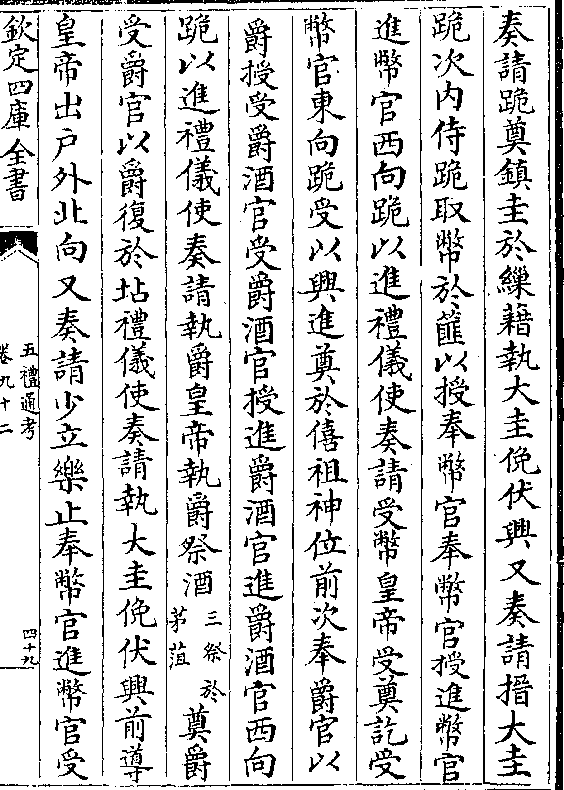 奏請跪奠鎮圭於繅藉執大圭俛伏興又奏請搢大圭
跪次内侍跪取幣於篚以授奉幣官奉幣官授進幣官
進幣官西向跪以進禮儀使奏請受幣皇帝受奠訖受
幣官東向跪受以興進奠於僖祖神位前次奉爵官以
爵授受爵酒官受爵酒官授進爵酒官進爵酒官西向
跪以進禮儀使奏請執爵皇帝執爵祭酒三祭於茅苴奠爵
受爵官以爵復於坫禮儀使奏請執大圭俛伏興前導
皇帝出户外北向又奏請少立樂止奉幣官進幣官受
欽定四庫全書
五禮通考
卷九十二
四十九